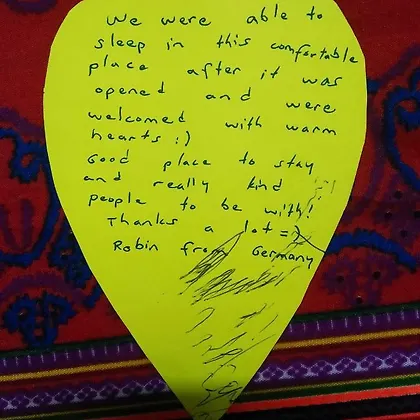 We were able to
sleep in this comfortable
place after it was
opened and were
welcomed with warm
hearts :)
Good place to stay
and really kind
people to be with!
Thanks a lot =)
Robin from Germany